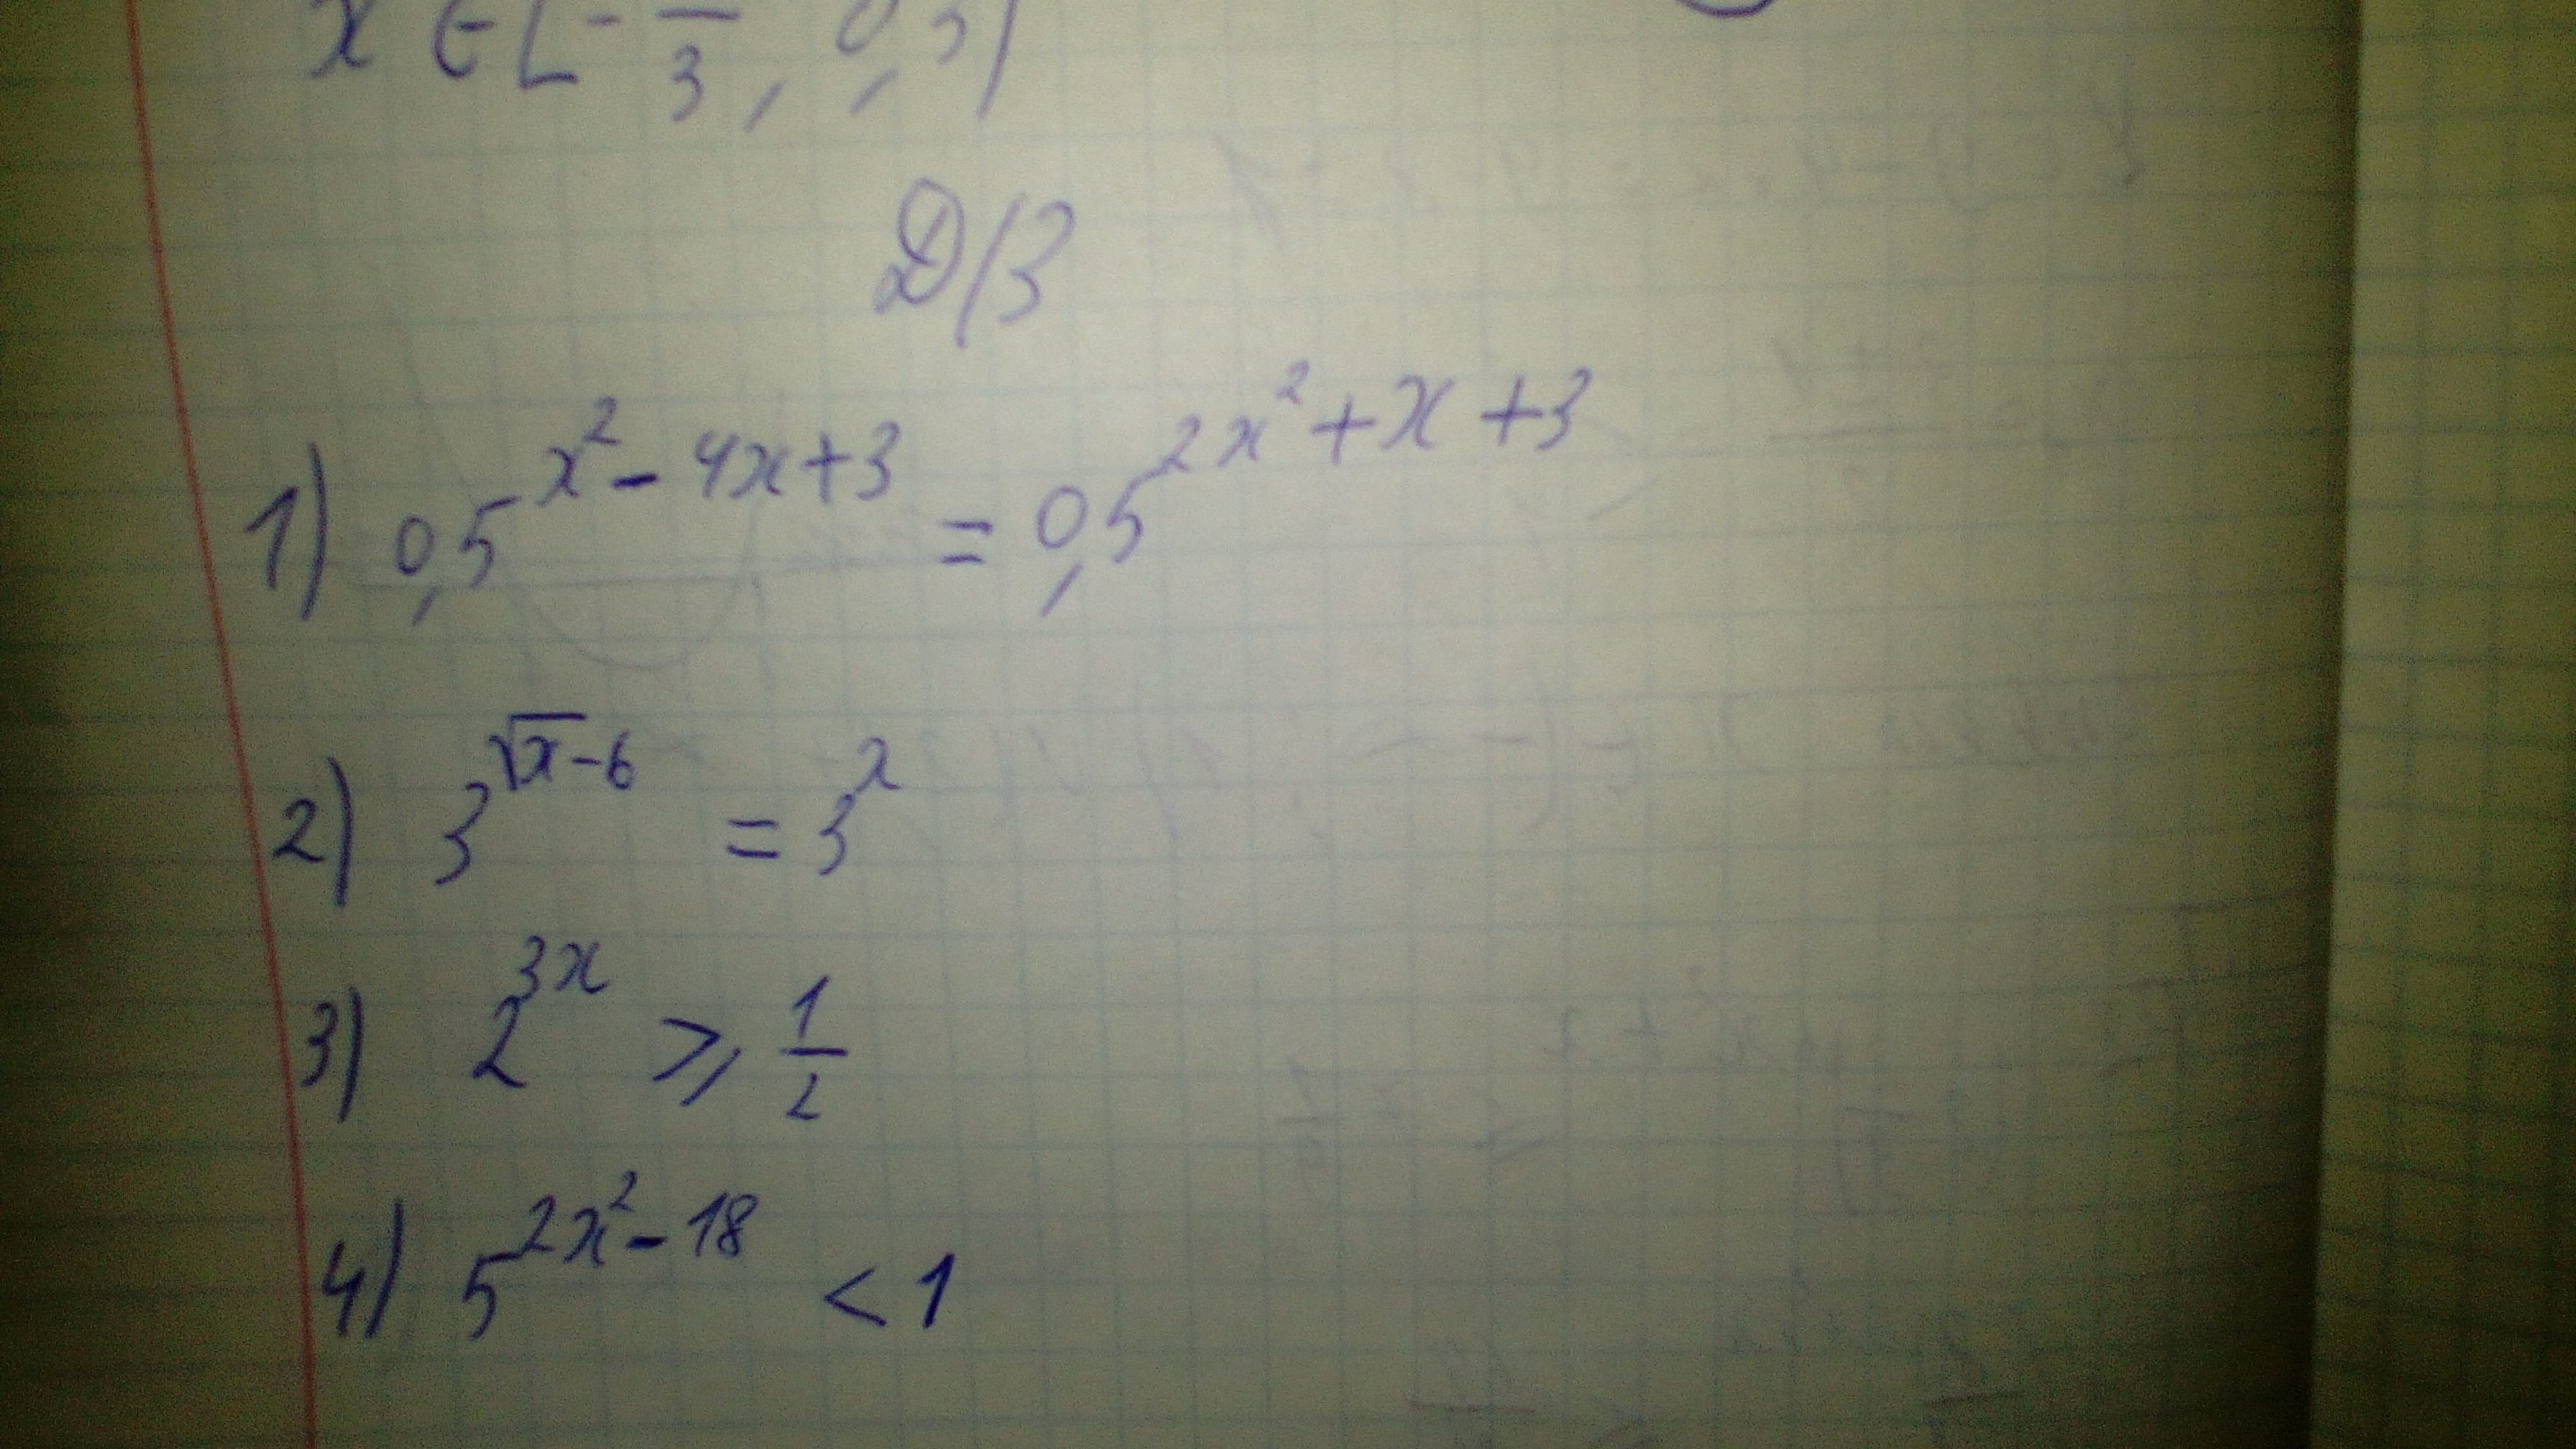 x ∈ [-─/3, 0,5)
Д/З
1) 0,5^(x²-4x+3) = 0,5^(2x²+x+3)
2) 3^(√x-6) = 3^x
3) 2^(3x) ⩾ 1/2
4) 5^(2x²-18) < 1